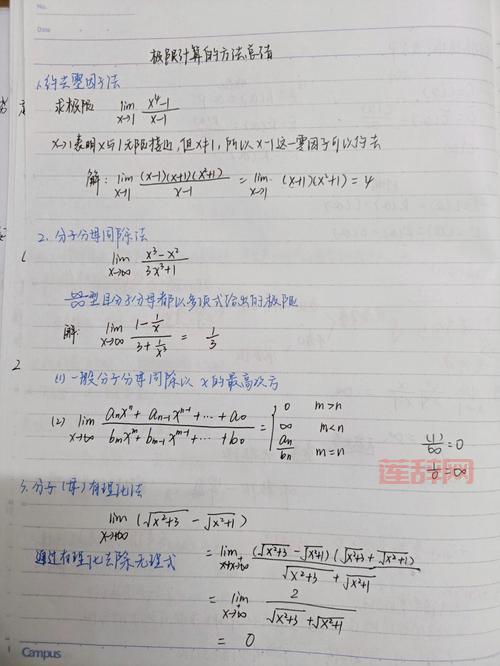 No.
Date
极限计算的方法总结
1.约去零因子法
求极限 lim x→1 (x⁴-1)/(x-1)
x→1表明x与1无限接近,但x≠1,所以x-1这一零因子可以约去
解: lim x→1 (x-1)(x+1)(x²+1)/(x-1) = lim x→1 (x+1)(x²+1) = 4
2. 分子分母同除法
lim x→∞ (x³-x²)/(3x³+1)
∞/∞型且分子分母都以多项式给出的极限
解: lim x→∞ (1-1/x)/(3+1/x³) = 1/3
(1) 一般分子分母同除以 x的最高次方
(2) lim x→∞ (aₙxⁿ+aₙ₋₁xⁿ⁻¹+⋯+a₀)/(bₘxᵐ+bₘ₋₁xᵐ⁻¹+⋯+b₀) = { 0 m>n
∞ m<n
aₙ/bₙ m=n
=0
1/0=∞
莲辞网
3.分子(母)有理化法
lim x→+∞ (√(x²+3) - √(x²+1))
通过有理化去除无理式 = lim x→+∞ (√(x²+3) - √(x²+1))(√(x²+3) + √(x²+1))/(√(x²+3) + √(x²+1))
= lim x→∞ 2/(√(x²+3) + √(x²+1))
= 0
Campus